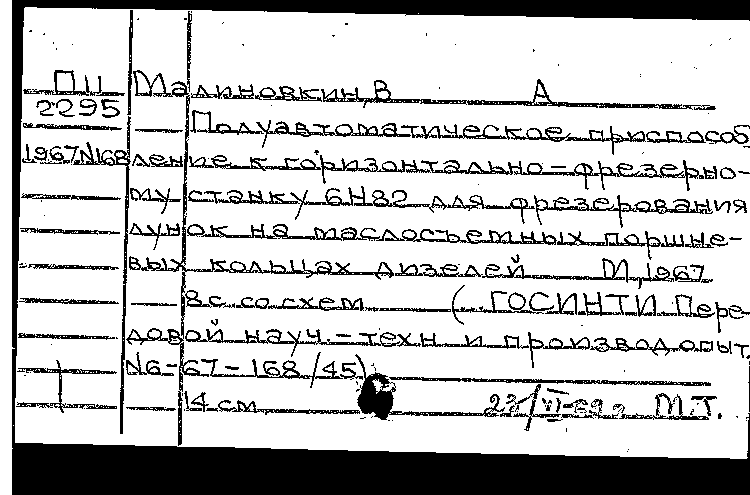 П11 Малиновкин, В А
2295 Полуавтоматическое приспособ
1967N168 ление к горизонтально-фрезерно-
му станку 6Н82 для фрезерования
лунок на маслосъемных поршне-
вых кольцах дизелей М, 1967
8с со схем (ГОСИНТИ Пере-
довой науч.-техн и производ опыт
N6-67-168/45)
14 см 23/VI-69 г М.Т.